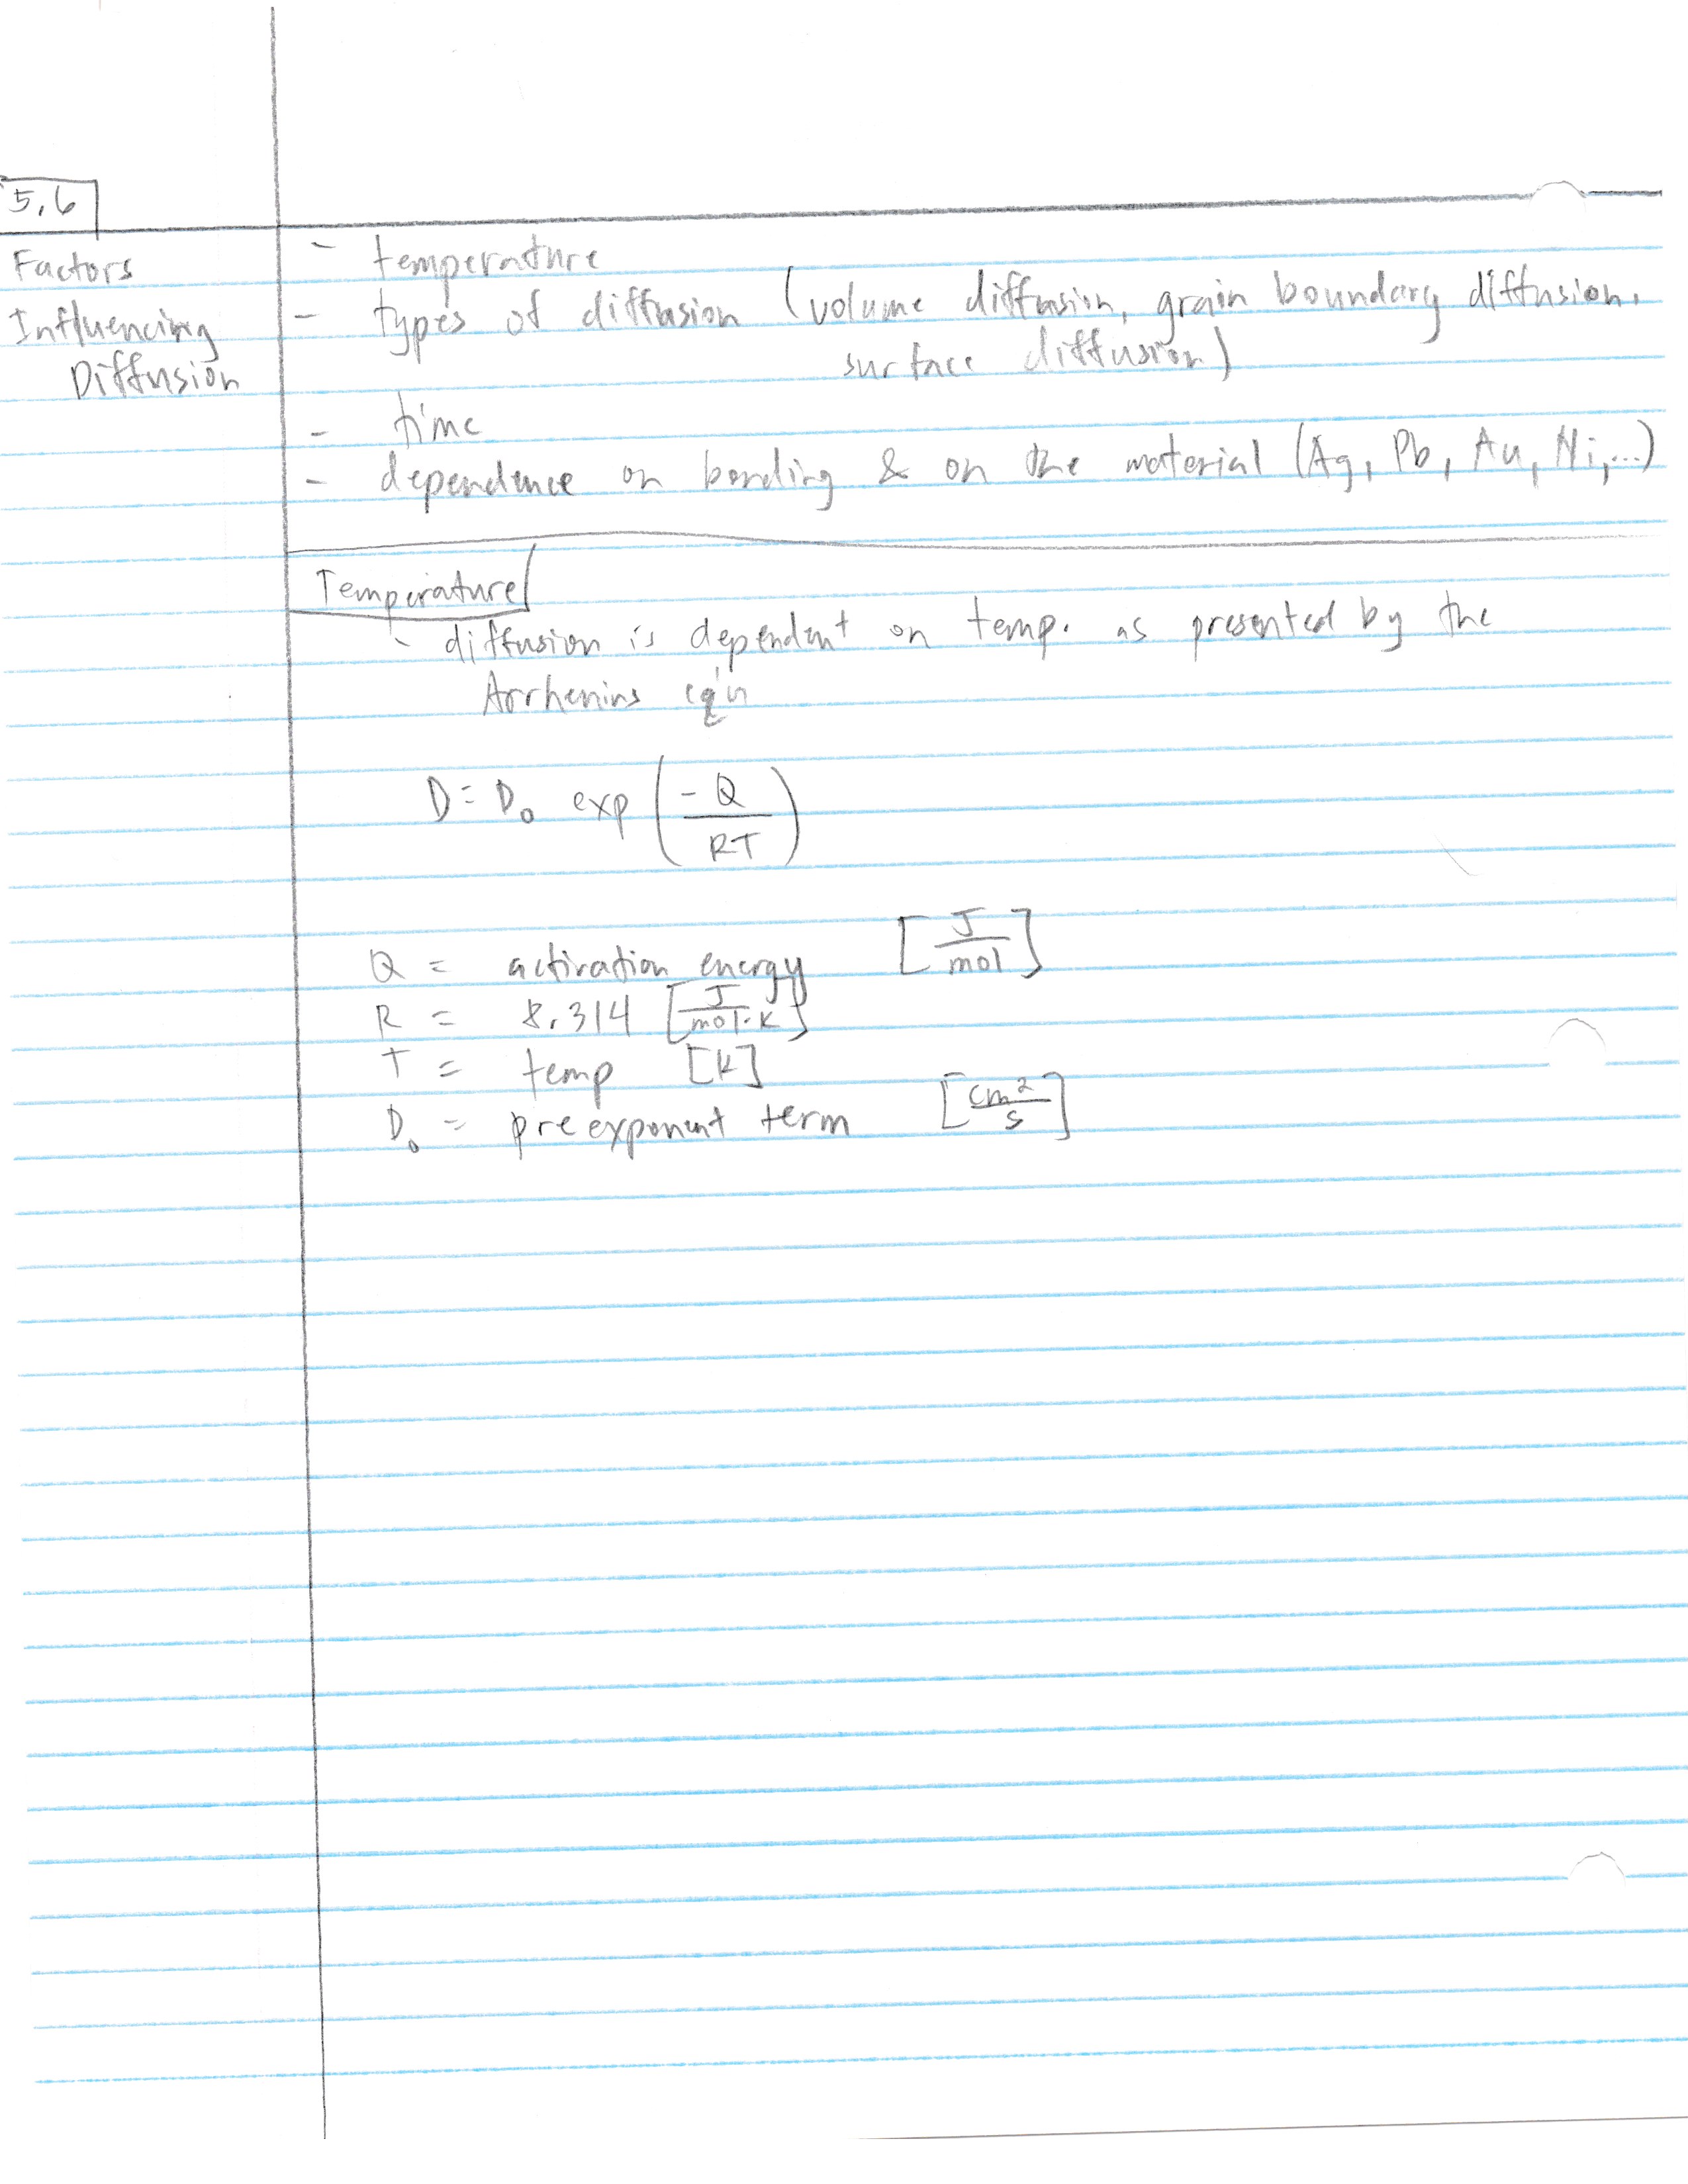 5.6
Factors
Influencing
Diffusion
- temperature
- types of diffusion (volume diffusion, grain boundary diffusion,
surface diffusion)
- time
- dependence on bonding & on the material (Ag, Pb, Au, Ni,...)
Temperature
- diffusion is dependent on temp. as presented by the
Arrhenius eq'n
D = D₀ exp (-Q/RT)
Q = activation energy [J/mol]
R = 8.314 [J/mol·K]
T = temp [K]
D₀ = preexponent term [cm²/s]